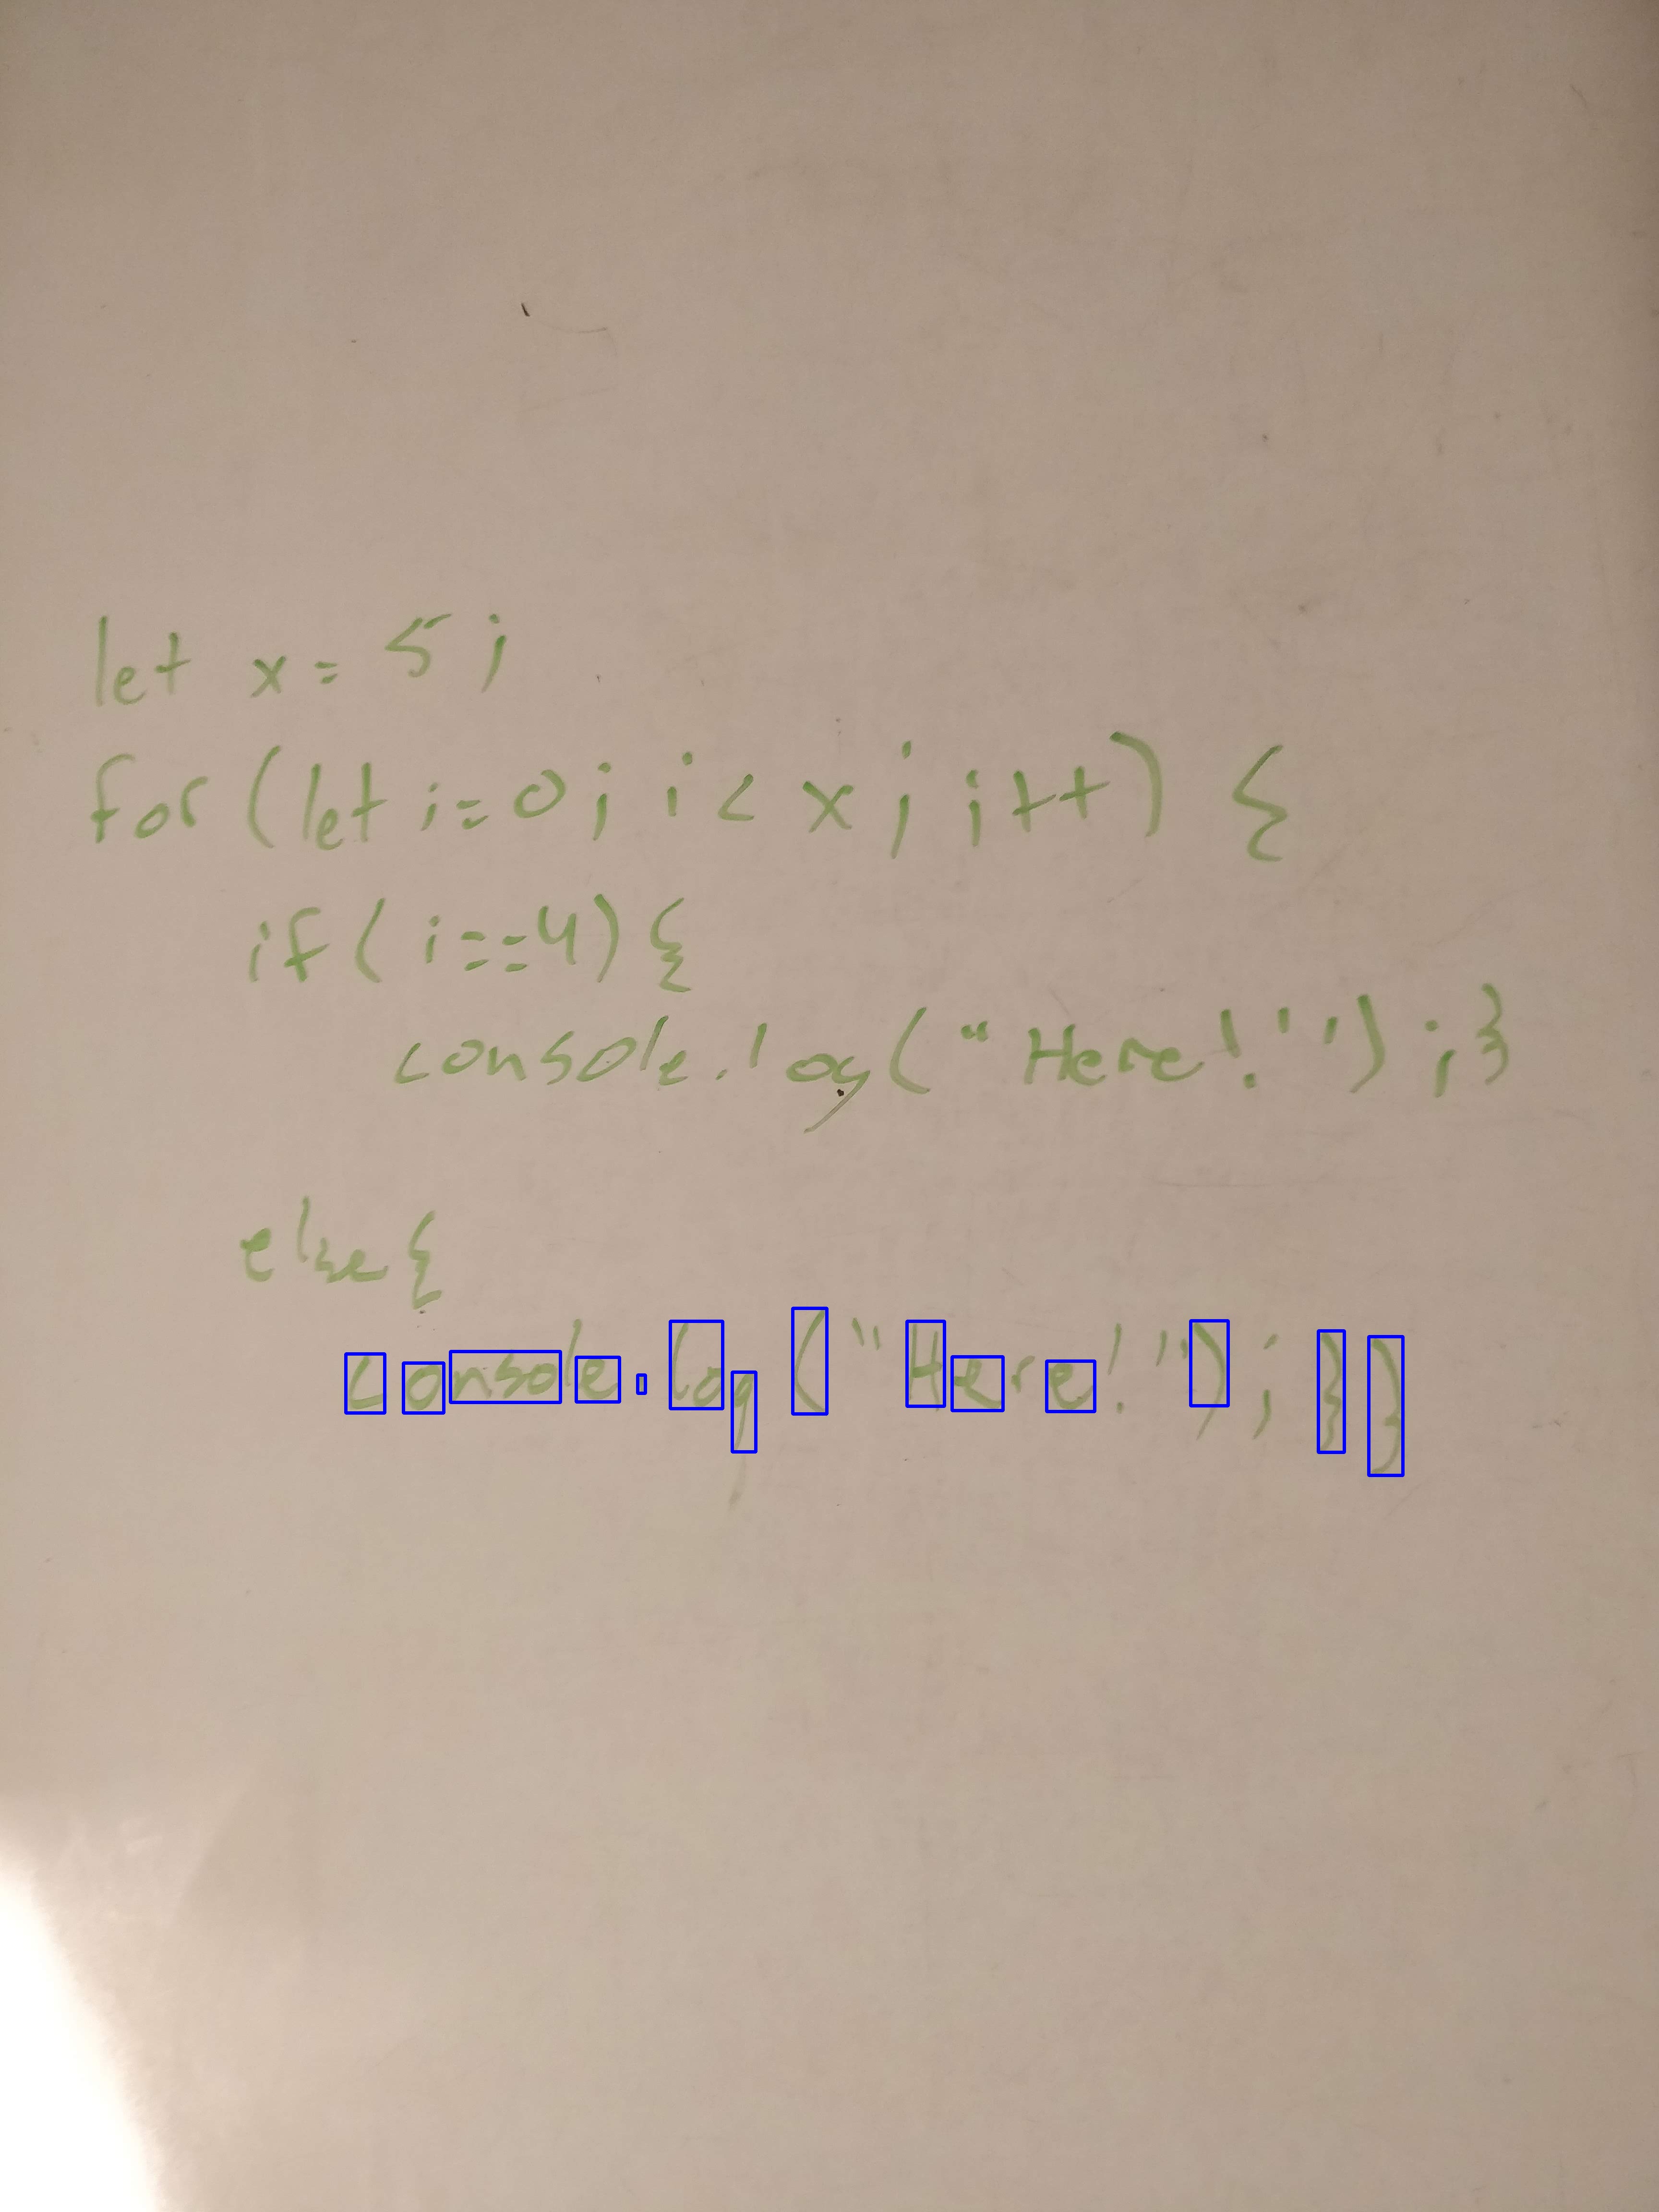 let x = 5;
for (let i=0; i < x; i++) {
if (i==4) {
console.log("Here!");}
else {
console.log ("Here!"); } }